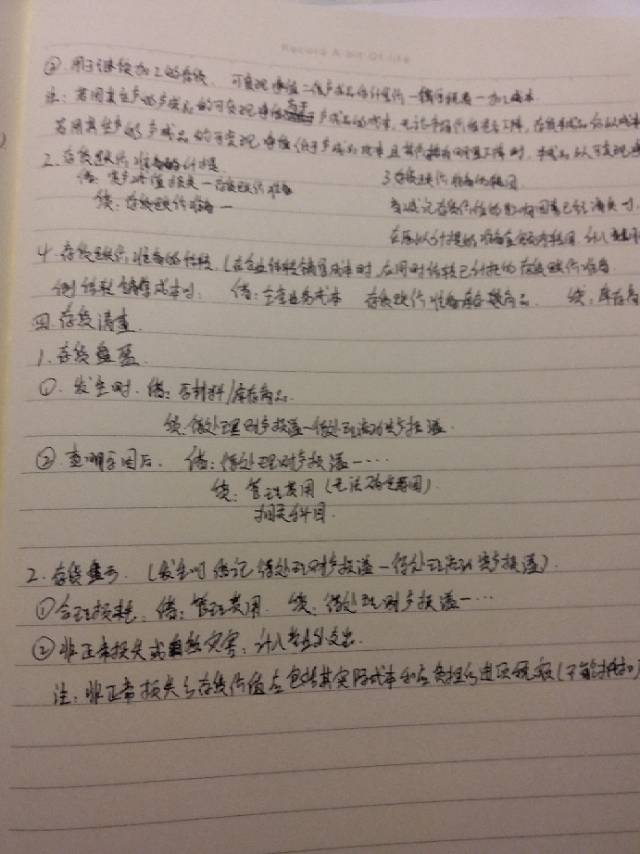 Record A bit Of life
②. 用于继续加工的存货. 可变现净值=该产成品估计售价-销售税费-加工成本
注: 若用其生产的产成品的可变现净值高于产成品的成本,
若用其生产的产成品的可变现净值低于产成品成本且 下降时, 可变现净
2. 存货跌价准备的计提.
借: 资产减值损失-存货跌价准备
贷: 存货跌价准备-
3 存货跌价准备的转回.
当减记存货价值的影响因素已经消失时,
在原以计提的准备金额内转回. 计入
4. 存货跌价准备的结转. (在企业结转销售成本时, 应同时结转已计提的存货跌价准备
例 结转销售成本时: 借: 主营业务成本 存货跌价准备 商品. 贷: 库存商
四. 存货清查.
1. 存货盘盈.
①. 发生时. 借: 原材料/库存商品.
贷: 待处理财产损溢-待处理流动资产损溢.
②. 查明原因后. 借: 待处理财产损溢-····
贷: 管理费用 (无法确定原因).
相关科目.
2. 存货盘亏. (发生时 借记 待处理财产损溢-待处理流动资产损溢).
①合理损耗. 借: 管理费用. 贷: 待处理财产损溢-···
②非正常损失或自然灾害, 计入营业外支出.
注: 非正常损失的存货价值应包括其实际成本和应负担的进项税额(不能抵扣)